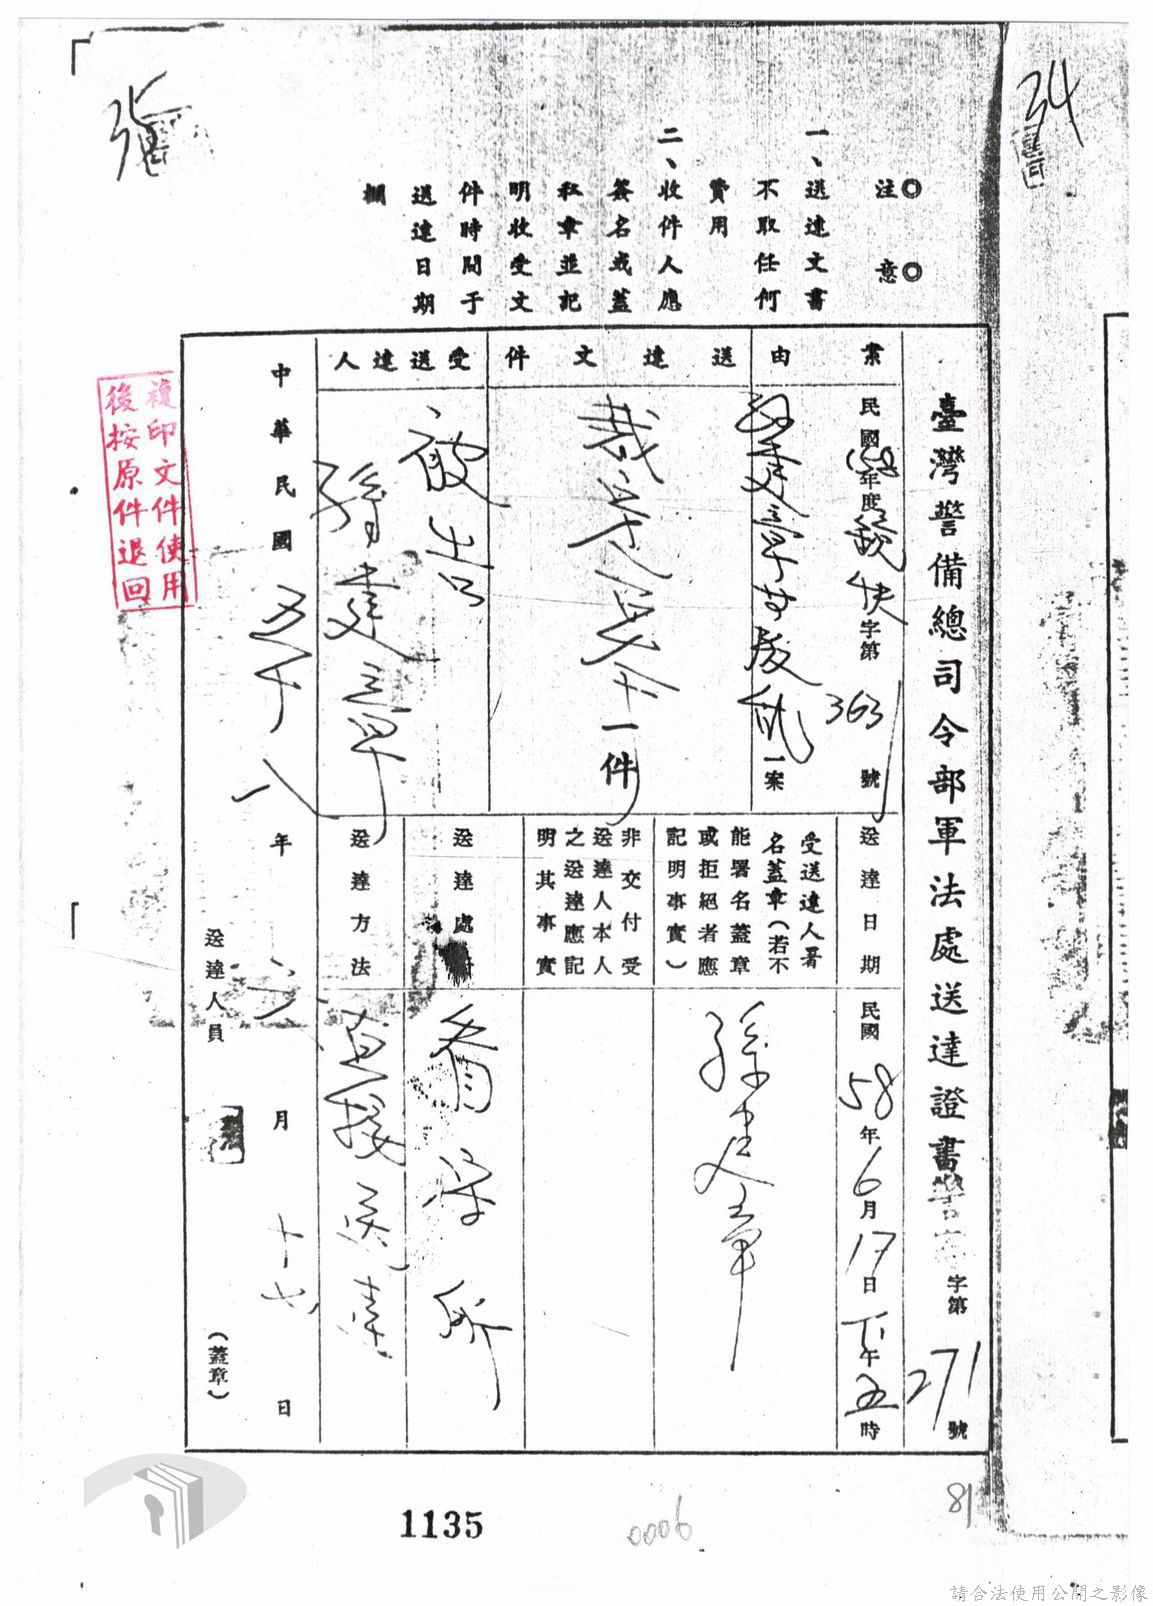 34
◎注意◎
一、送達文書
不取任何
費用
二、收件人應
簽名或蓋
私章並記
明收受文
件時間于
送達日期
欄
臺灣警備總司令部軍法處送達證書警 字第271號
案由
民國58年度 字第363號
孫建章 一案
送達文件
裁定 一件
受送達人
被告
孫建章
送達日期
民國58年6月17日下午五時
受送達人署
名蓋章(若不
能署名蓋章
或拒絕者應
記明事實)
孫建章
非交付受
送達人本人
之送達應記
明其事實
送達處所
看守所
送達方法
直接送達
中華民國五十八年六月十七日
送達人員
(蓋章)
複印文件使用
後按原件退回
1135
0006
81
請合法使用公開之影像